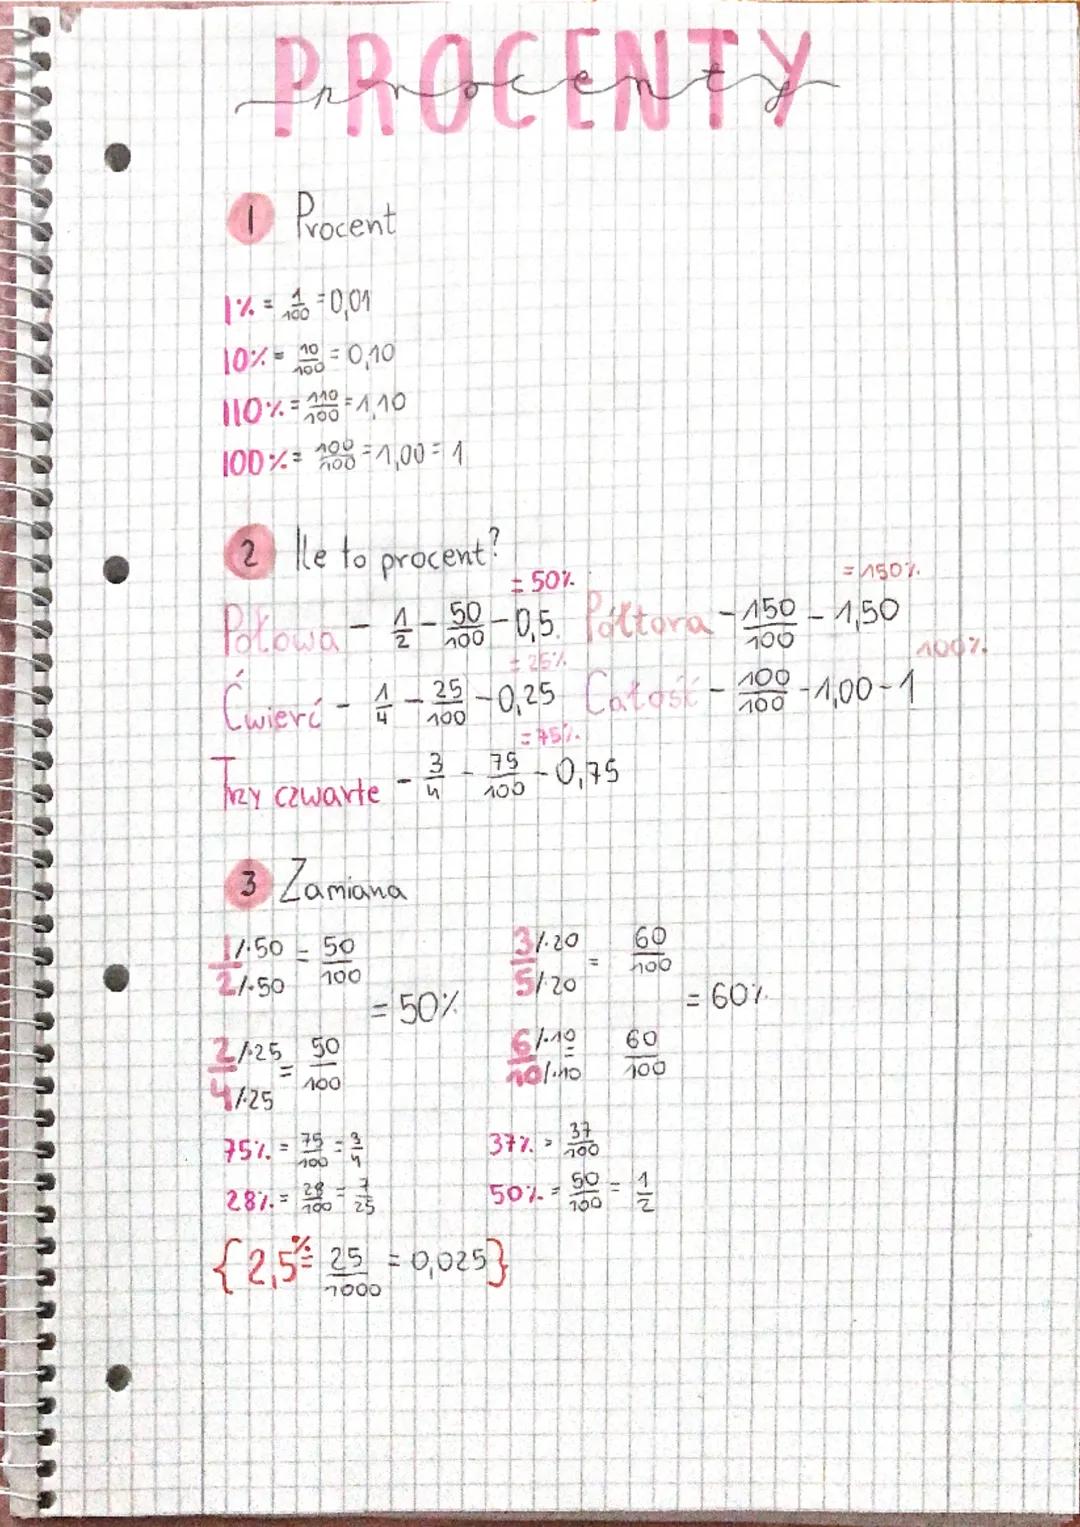 PROCENTY
procenty
1 Procent
1% = 1/100 = 0,01
10% = 10/100 = 0,10
110% = 110/100 = 1,10
100% = 100/100 = 1,00 = 1
2 Ile to procent?
= 50% = 150%
Połowa - 1/2 - 50/100 - 0,5. Półtora - 150/100 - 1,50
= 25% 100%
Ćwierć - 1/4 - 25/100 - 0,25 Całość - 100/100 - 1,00 - 1
= 75%
Trzy czwarte - 3/4 - 75/100 - 0,75
3 Zamiana
1/·50 = 50 3/·20 = 60
2/·50 100 5/·20 100
= 50% = 60%
2/·25 = 50 6/·10 = 60
4/·25 100 10/·10 100
75% = 75/100 = 3/4 37% = 37/100
28% = 28/100 = 7/25 50% = 50/100 = 1/2
{2,5% = 25/1000 = 0,025}